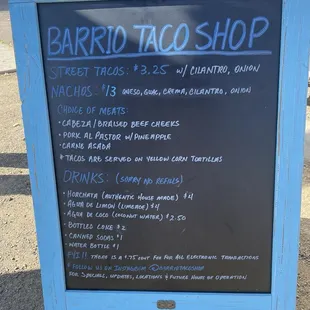 BARRIO TACO SHOP
STREET TACOS: $3.25 w/ CILANTRO, ONION
NACHOS: $13 QUESO, GUAC, CREMA, CILANTRO, ONION
CHOICE OF MEATS:
• CABEZA / BRAISED BEEF CHEEKS
• PORK AL PASTOR w/ PINEAPPLE
• CARNE ASADA
* TACOS ARE SERVED ON YELLOW CORN TORTILLAS
DRINKS: (SORRY NO REFILLS)
• HORCHATA (AUTHENTIC HOUSE MADE) $4
• AGUA DE LIMON (LIMEADE) $4
• AGUA DE COCO (COCONUT WATER) $2.50
• BOTTLED COKE $2
• CANNED SODAS $1
• WATER BOTTLE $1
FYI!! THERE IS A $.75 FOR ALL ELECTRONIC TRANSACTIONS
* FOLLOW US ON INSTAGRAM @BARRIOTACOSHOP
FOR SPECIALS, UPDATES, LOCATIONS & FUTURE HOURS OF OPERATION